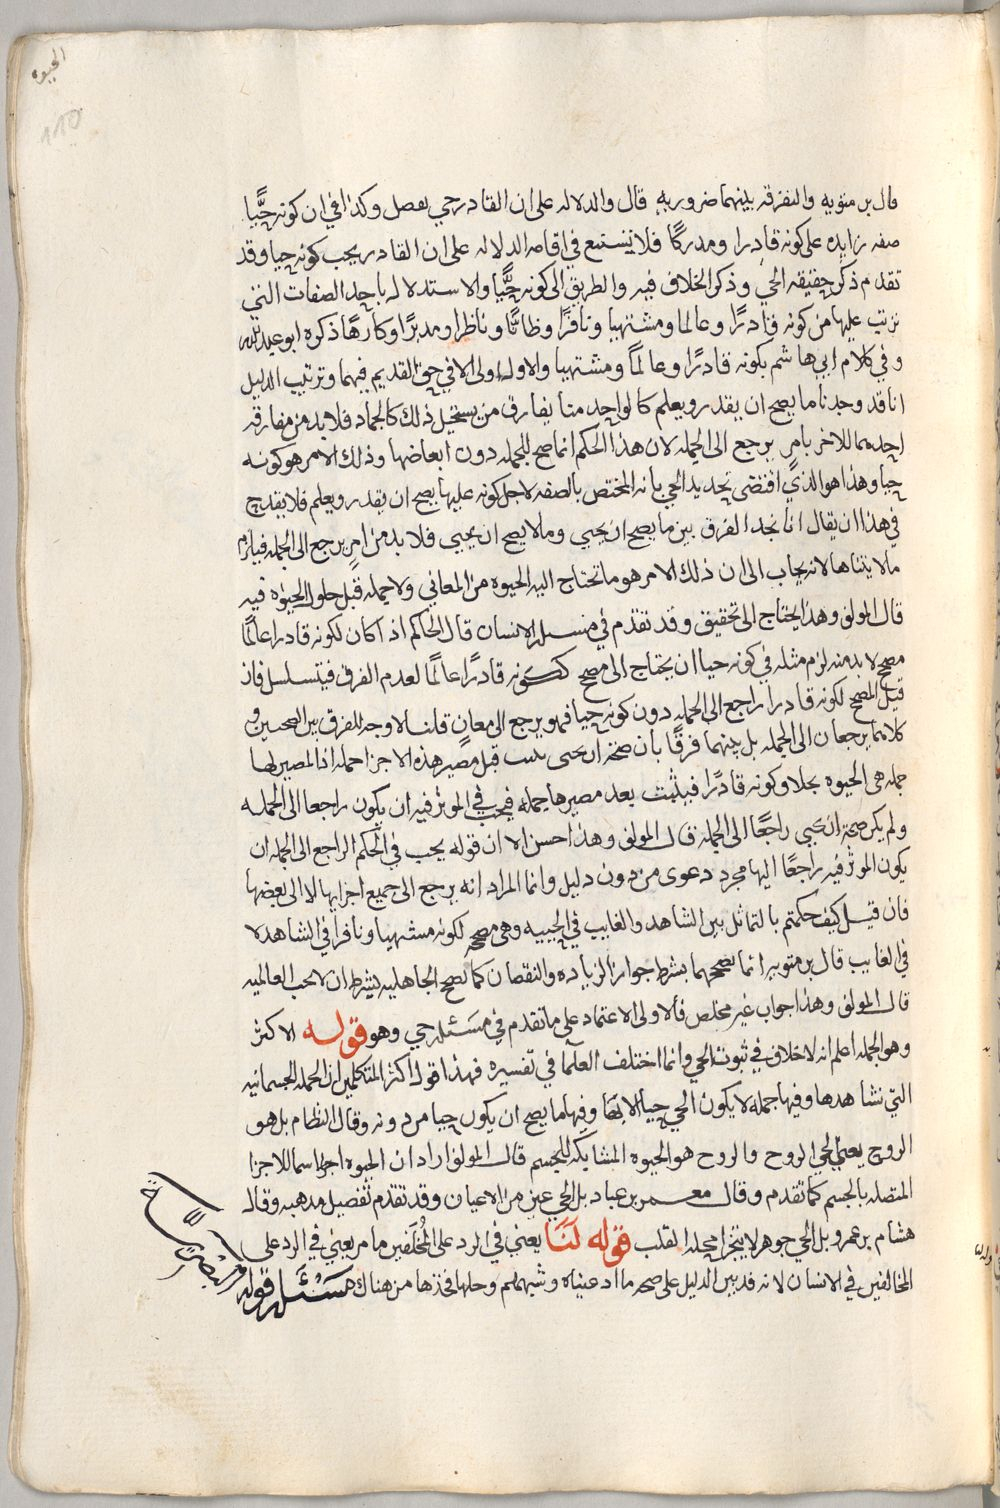 الحيوه
١١٥
قال بن متويه والتفرقه بينهما ضروريه قال والدلاله على ان القادر حي بفصل وكذا في ان كونه حيًّا
صفه زايده على كونه قادرا ومدركًا فلا نستبع في اقامه الدلاله على ان القادر يجب كونه حيا وقد
تقدم ذكر حقيقه الحي وذكر الخلاف فيه والطريق الى كونه حيًّا والاستدلال باحد الصفات التي
ترتب عليها من كونه قادرًا وعالما ومشتهيا ونافرًا وظانًا وناظرا ومدركًا وكارهًا ذكره ابو عبد الله
وفي كلام ابي هاشم بكونه قادرًا وعالمًا ومشتهيا والاول اولى الا في حق القديم فيهما وترتيب الدليل
انا قد وجدنا ما يصح ان يقدر ويعلم كالواحد منا يفارق من يستحيل ذلك كالجماد فلا بد من مفارقه
احدهما للاخر بامر يرجع الى الجمله لان هذا الحكم انما صح للجمله دون ابعاضها وذلك الامر هو كونه
حيا وهذا هو الذي اقتضى تحديد الحي بانه المختص بالصفه لاجل كونه عليها يصح ان يقدر ويعلم فلا يقدح
في هذا ان يقال انا نجد الفرق بين ما يصح ان يحيى وما لا يصح ان يحيى فلا بد من امر يرجع الى الجمله فيلزم
ما لا يتناها لانه يجاب الى ان ذلك الامر هو ما تحتاج اليه الحيوه من المعاني ولا جمله قبل حلول الحيوه فيه
قال المولف وهذا يحتاج الى تحقيق وقد تقدم في مسئله الانسان قال الحاكم اذا كان لكونه قادرا عالمًا
مصحح لا بد منه لزم مثله في كونه حيا ان يحتاج الى مصحح ككونه قادرًا عالمًا لعدم الفرق فيتسلسل فان
قيل المصحح لكونه قادرا راجع الى الجمله دون كونه حيا فهو يرجع الى معان قلنا لا وجه للفرق بين الصحتين وهو
كلاهما يرجعان الى الجمله بل بينهما فرقًا بان صحة ان يحيى تثبت قبل مصير هذه الاجزا جمله اذ المصير لها
جمله هي الحيوه بخلاف كونه قادرًا فيثبت بعد مصيرها جمله فيجب في الموثر فيه ان يكون راجعا الى الجمله
ولم يكن صحة ان يحيى راجعًا الى الجمله قال المولف وهذا احسن الا ان قوله يجب في الحكم الراجع الى الجمله ان
يكون الموثر فيه راجعًا اليها مجرد دعوى من دون دليل وانما المراد انه يرجع الى جميع اجزايها لا الى بعضها
فان قيل كيف حكمتم بالتماثل بين الشاهد والغايب في الحييه وهي مصحح لكونه مشتهيا ونافرا في الشاهد لا
في الغايب قال بن متويه انما تصححهما بشرط جواز الزياده والنقصان كما تصحح الجاهليه بشرط ان لا يجب العالميه
قال المولف وهذا جواب غير مخلص فالاولى الاعتماد على ما تقدم في مسئله حي وهو قوله الاكثر
وهو الجمله اعلم انه لا خلاف في ثبوت الحي وانما اختلف العلما في تفسيره فهذا قول اكثر المتكلمين ان الجمله الجسمانيه
التي نشاهدها وفيها جمله لا يكون الحي حيا الا بها وفيها ما يصح ان يكون حيا من دونه وقال النظام بل هو
الروح يعني الحي الروح والروح هو الحيوه المشابكه للجسم قال المولف اراد ان الحيوه اجل اسما للاجزا
المتصله بالجسم كما تقدم وقال معمر بن عباد بل الحي عين من الاعيان وقد تقدم تفصيل مذهبه وقال
هشام بن عمرو بل الحي جوهر لا يتجزا محله القلب قوله لنا يعني في الرد على المخالفين ما مر يعني في الرد على
المخالفين في الانسان لانه قد بين الدليل على صحه ما ادعيناه وشبههم وحلها فخذها من هناك مسئله قوله